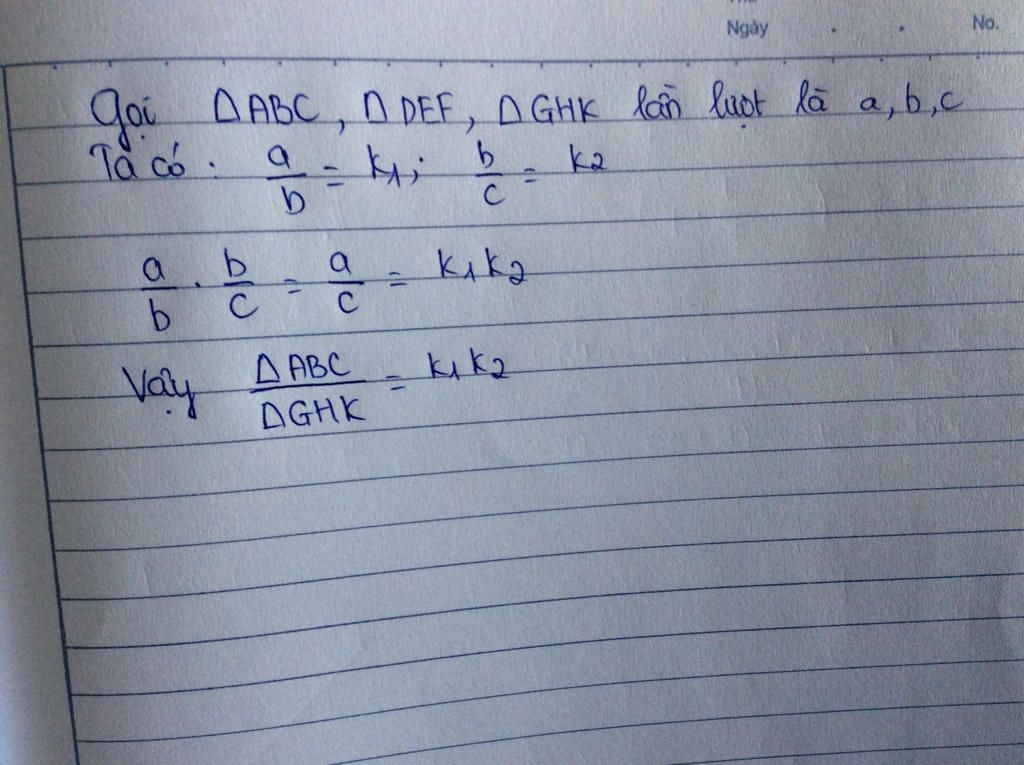 Ngày . . No.
Gọi ΔABC, ΔDEF, ΔGHK lần lượt là a, b, c
Ta có: a/b = k1; b/c = k2
a/b . b/c = a/c = k1k2
Vậy ΔABC/ΔGHK = k1k2